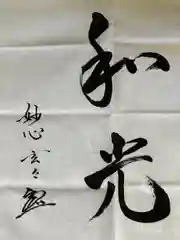 和光
妙心玄々